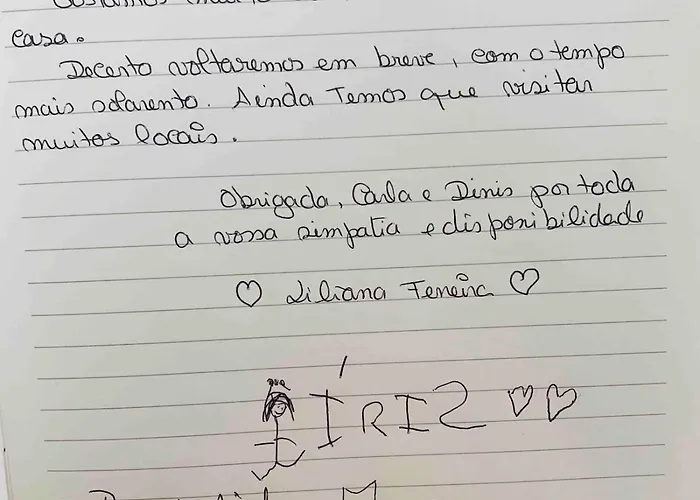 casa.
Decerto voltaremos em breve, com o tempo
mais solarento. Ainda Temos que visitar
muitos locais.
Obrigada, Carla e Dinis por toda
a vossa simpatia e disponibilidade
♡ Liliana Ferreira ♡
ÍRIZ ♡♡